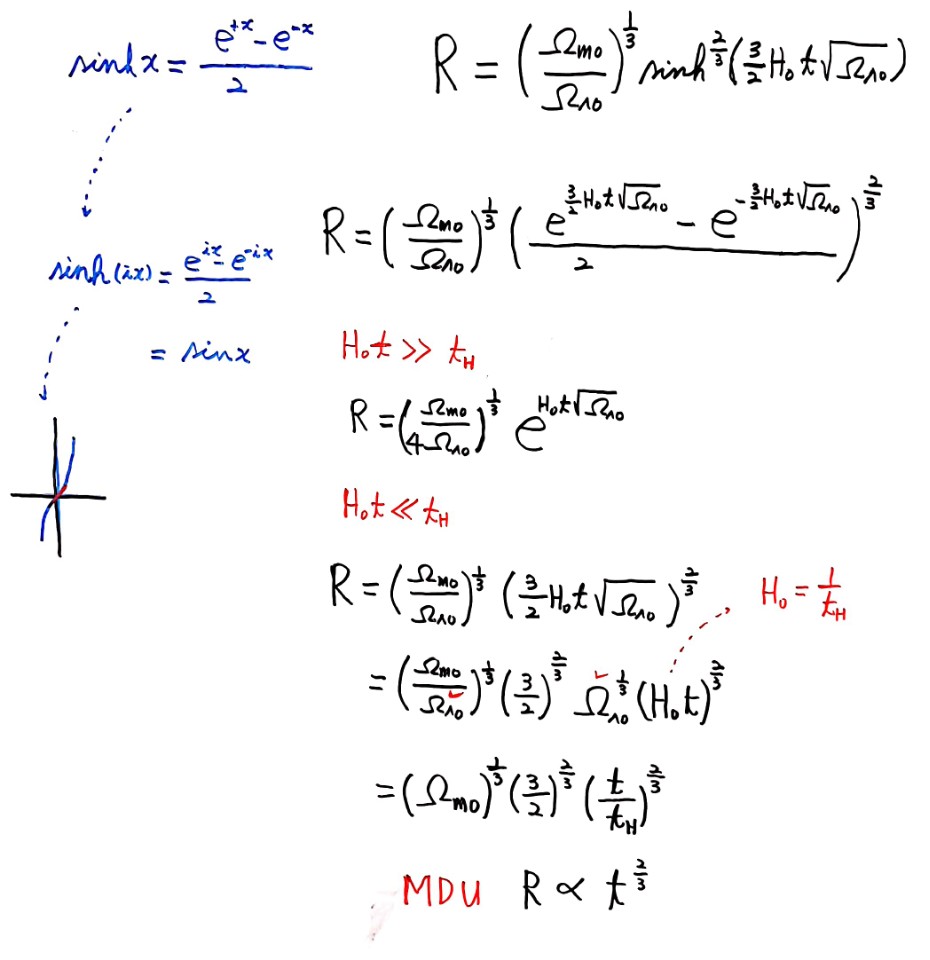 sinh x = (e^{+x} - e^{-x})/2
R = (Ω_{m0}/Ω_{Λ0})^{1/3} sinh^{2/3}(3/2 H_0 t √Ω_{Λ0})
R = (Ω_{m0}/Ω_{Λ0})^{1/3} ((e^{3/2 H_0 t √Ω_{Λ0}} - e^{-3/2 H_0 t √Ω_{Λ0}})/2)^{2/3}
sinh(ix) = (e^{ix} - e^{-ix})/2
= sin x
H_0 t >> t_H
R = (Ω_{m0}/4Ω_{Λ0})^{1/3} e^{H_0 t √Ω_{Λ0}}
H_0 t << t_H
R = (Ω_{m0}/Ω_{Λ0})^{1/3} (3/2 H_0 t √Ω_{Λ0})^{2/3}
H_0 = 1/t_H
= (Ω_{m0}/Ω_{Λ0})^{1/3} (3/2)^{2/3} Ω_{Λ0}^{1/3} (H_0 t)^{2/3}
= (Ω_{m0})^{1/3} (3/2)^{2/3} (t/t_H)^{2/3}
MDU R ∝ t^{2/3}